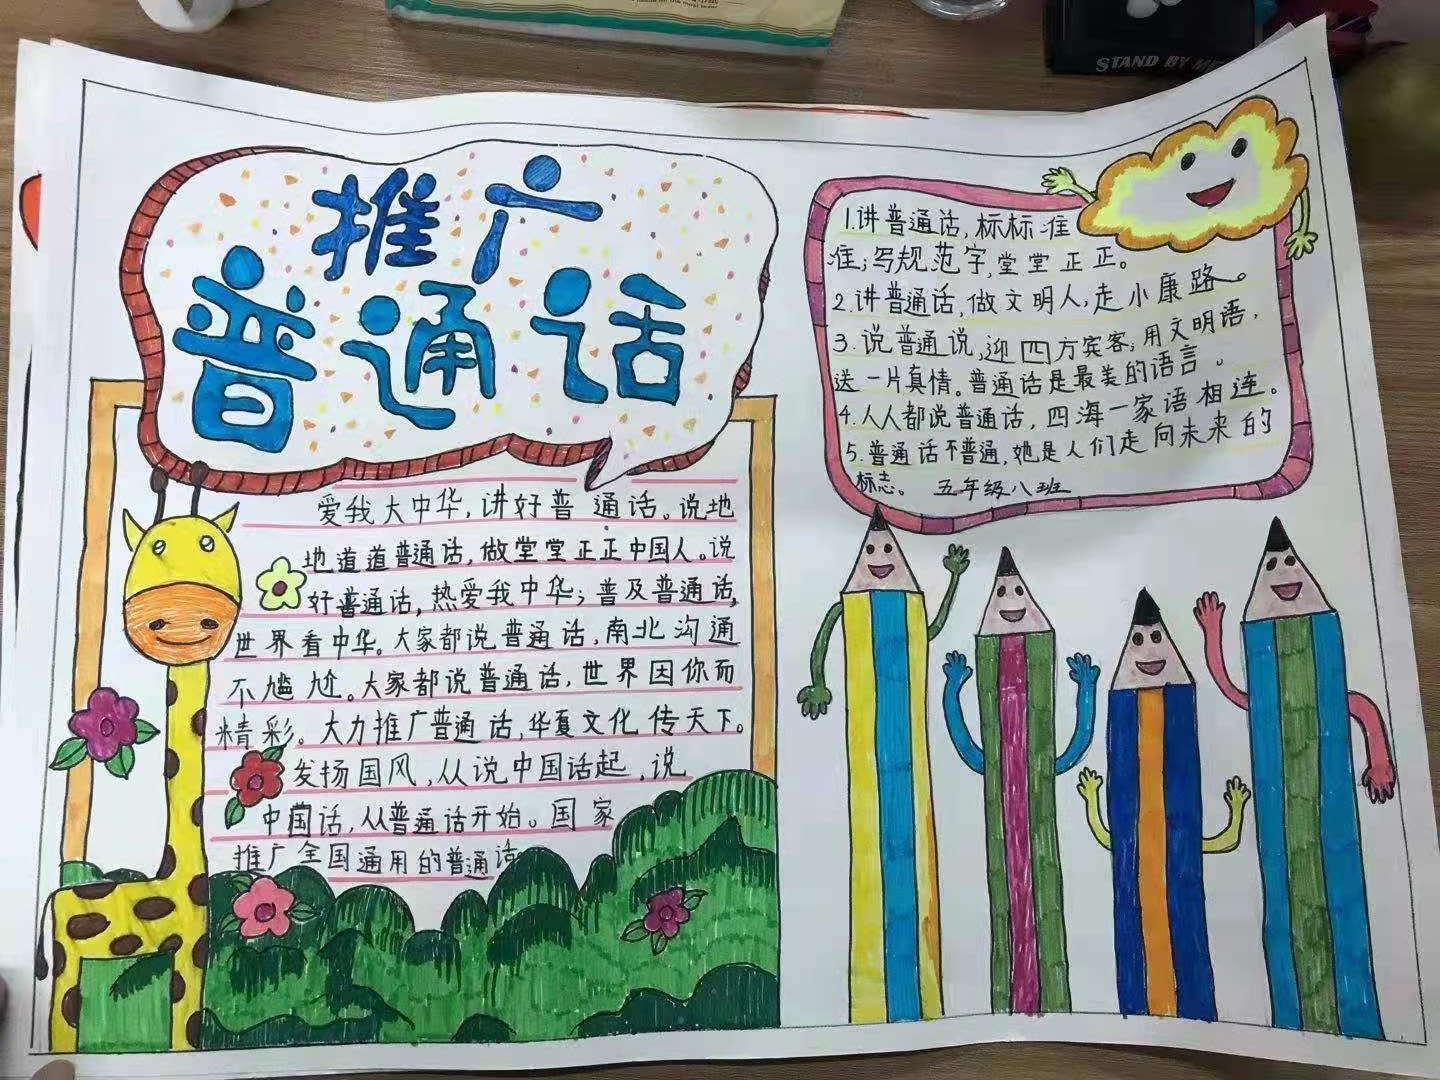 STAND BY ME
推广
普通话
爱我大中华，讲好普通话。说地
地道道普通话，做堂堂正正中国人。说
好普通话，热爱我中华；普及普通话，
世界看中华。大家都说普通话，南北沟通
不尴尬。大家都说普通话，世界因你而
精彩。大力推广普通话，华夏文化传天下。
发扬国风，从说中国话起，说
中国话，从普通话开始。国家
推广全国通用的普通话
1.讲普通话，标标准
准；写规范字，堂堂正正。
2.讲普通话，做文明人，走小康路。
3.说普通说，迎四方宾客；用文明语，
送一片真情。普通话是最美的语言。
4.人人都说普通话，四海一家语相连。
5.普通话不普通，她是人们走向未来的
标志。 五年级八班